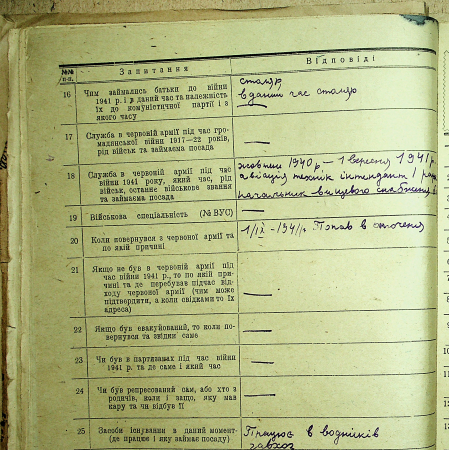 №№ п-п.
Запитання
Відповіді
16
Чим займались батьки до війни
1941 р. і в даний час та належність
їх до комуністичної партії і з
якого часу
столяр
в даний час столяр
17
Служба в червоній армії під час гро-
мадянської війни 1917—22 років,
рід військ та займаєма посада
—
18
Служба в червоній армії під час
війни 1941 року, який час, рід
військ, останнє військове звання
та займаєма посада
жовтень 1940 р — 1 вересня 1941 р.
авіація технік інтендант I ранг
начальник вищевого снабження
19
Військова спеціяльність (№ ВУС)
—
20
Коли повернувся з червоної армії та
по якій причині
1/IX -1941р. Попав в оточення
21
Якщо не був в червоній армії під
час війни 1941 р., то по якій при-
чині та де перебував підчас від-
ходу червоної армії (чим може
підтвердити, а коли свідками то їх
адреса)
—
22
Якщо був евакуйований, то коли по-
вернувся та звідки саме
—
23
Чи був в партизанах під час війни
1941 р. та де саме і який час
—
24
Чи був репресований сам, або хто з
родичів, коли і защо, яку мав
кару та чи відбув її
—
25
Засоби існування в даний момент-
(де працює і яку займає посаду)
Працює в водників
завхоз